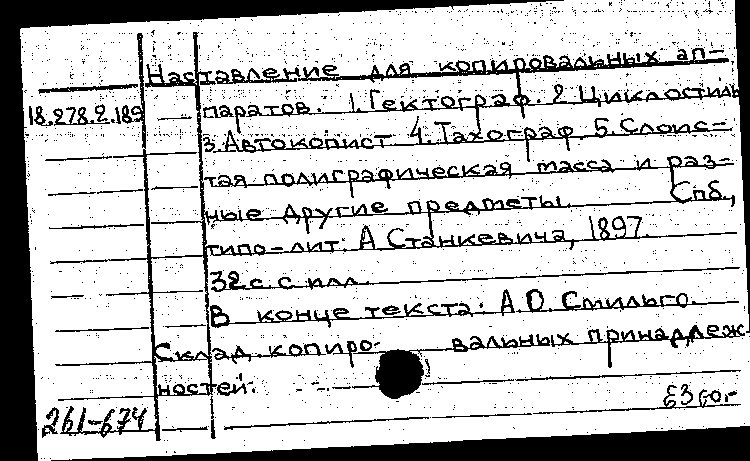 Наставление для копировальных ап-
18.278.2.189 паратов. 1. Гектограф. 2 Циклостиль
3. Автокопист 4. Тахограф. 5. Слоис-
тая полиграфическая масса и раз-
ные другие предметы. Спб.,
типо-лит. А Станкевича, 1897.
32 с. с илл.
В конце текста: А.О. Смильго.
Склад копиро- вальных принадлеж
ностей.
261-674